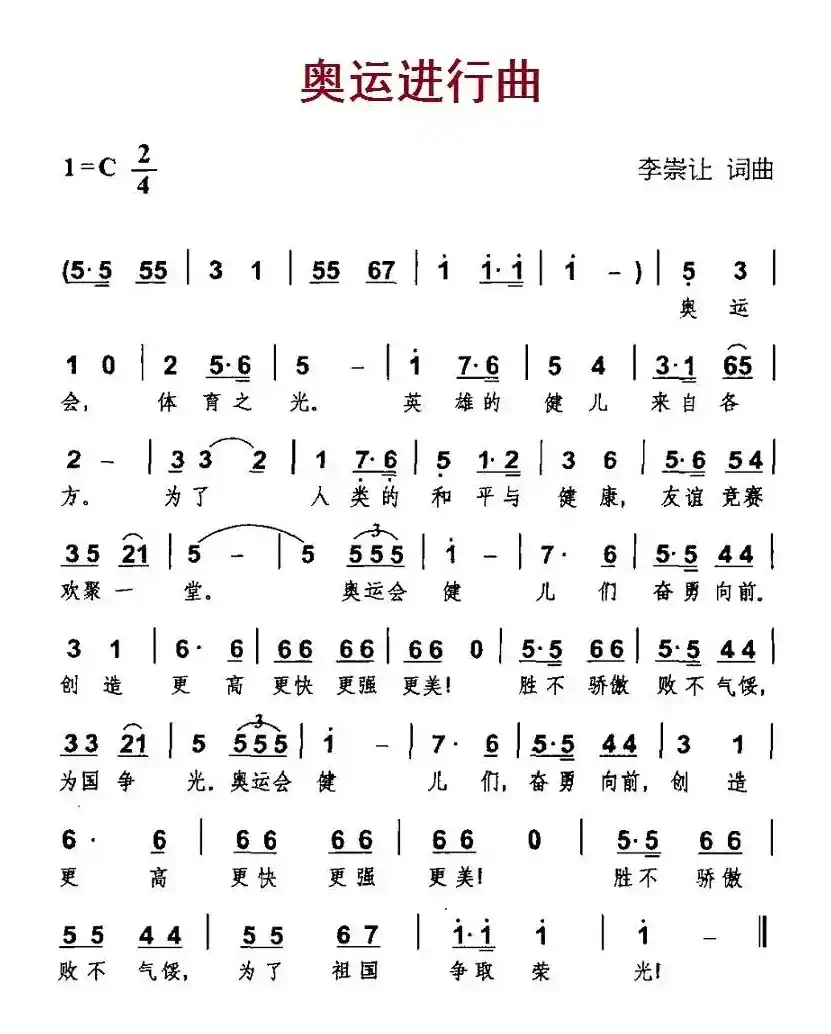 奥运进行曲
1=C 2/4 李崇让 词曲
(5·5 55 | 3 1 | 55 67 | i i·i | i - ) | 5 3 |
奥 运
1 0 | 2 5·6 | 5 - | i 7·6 | 5 4 | 3·1 65 |
会, 体 育之 光。 英 雄的 健 儿 来自 各
2 - | 3 3 2 | 1 7·6 | 5 1·2 | 3 6 | 5·6 54 |
方。 为了 人 类的 和 平与 健 康, 友谊 竞赛
35 21 | 5 - | 5 555 | i - | 7· 6 | 5·5 44 |
3
欢聚 一 堂。 奥运会 健 儿 们 奋勇 向前.
3 1 | 6· 6 | 66 66 | 66 0 | 5·5 66 | 5·5 44 |
创 造 更 高 更快 更强 更美! 胜不 骄傲 败不 气馁,
33 21 | 5 555 | i - | 7· 6 | 5·5 44 | 3 1 |
3
为国 争 光. 奥运会 健 儿 们, 奋勇 向前, 创 造
6· 6 | 66 66 | 66 0 | 5·5 66 |
更 高 更快 更强 更美! 胜不 骄傲
55 44 | 55 67 | i·i i | i - ‖
败不 气馁, 为了 祖国 争取 荣 光!